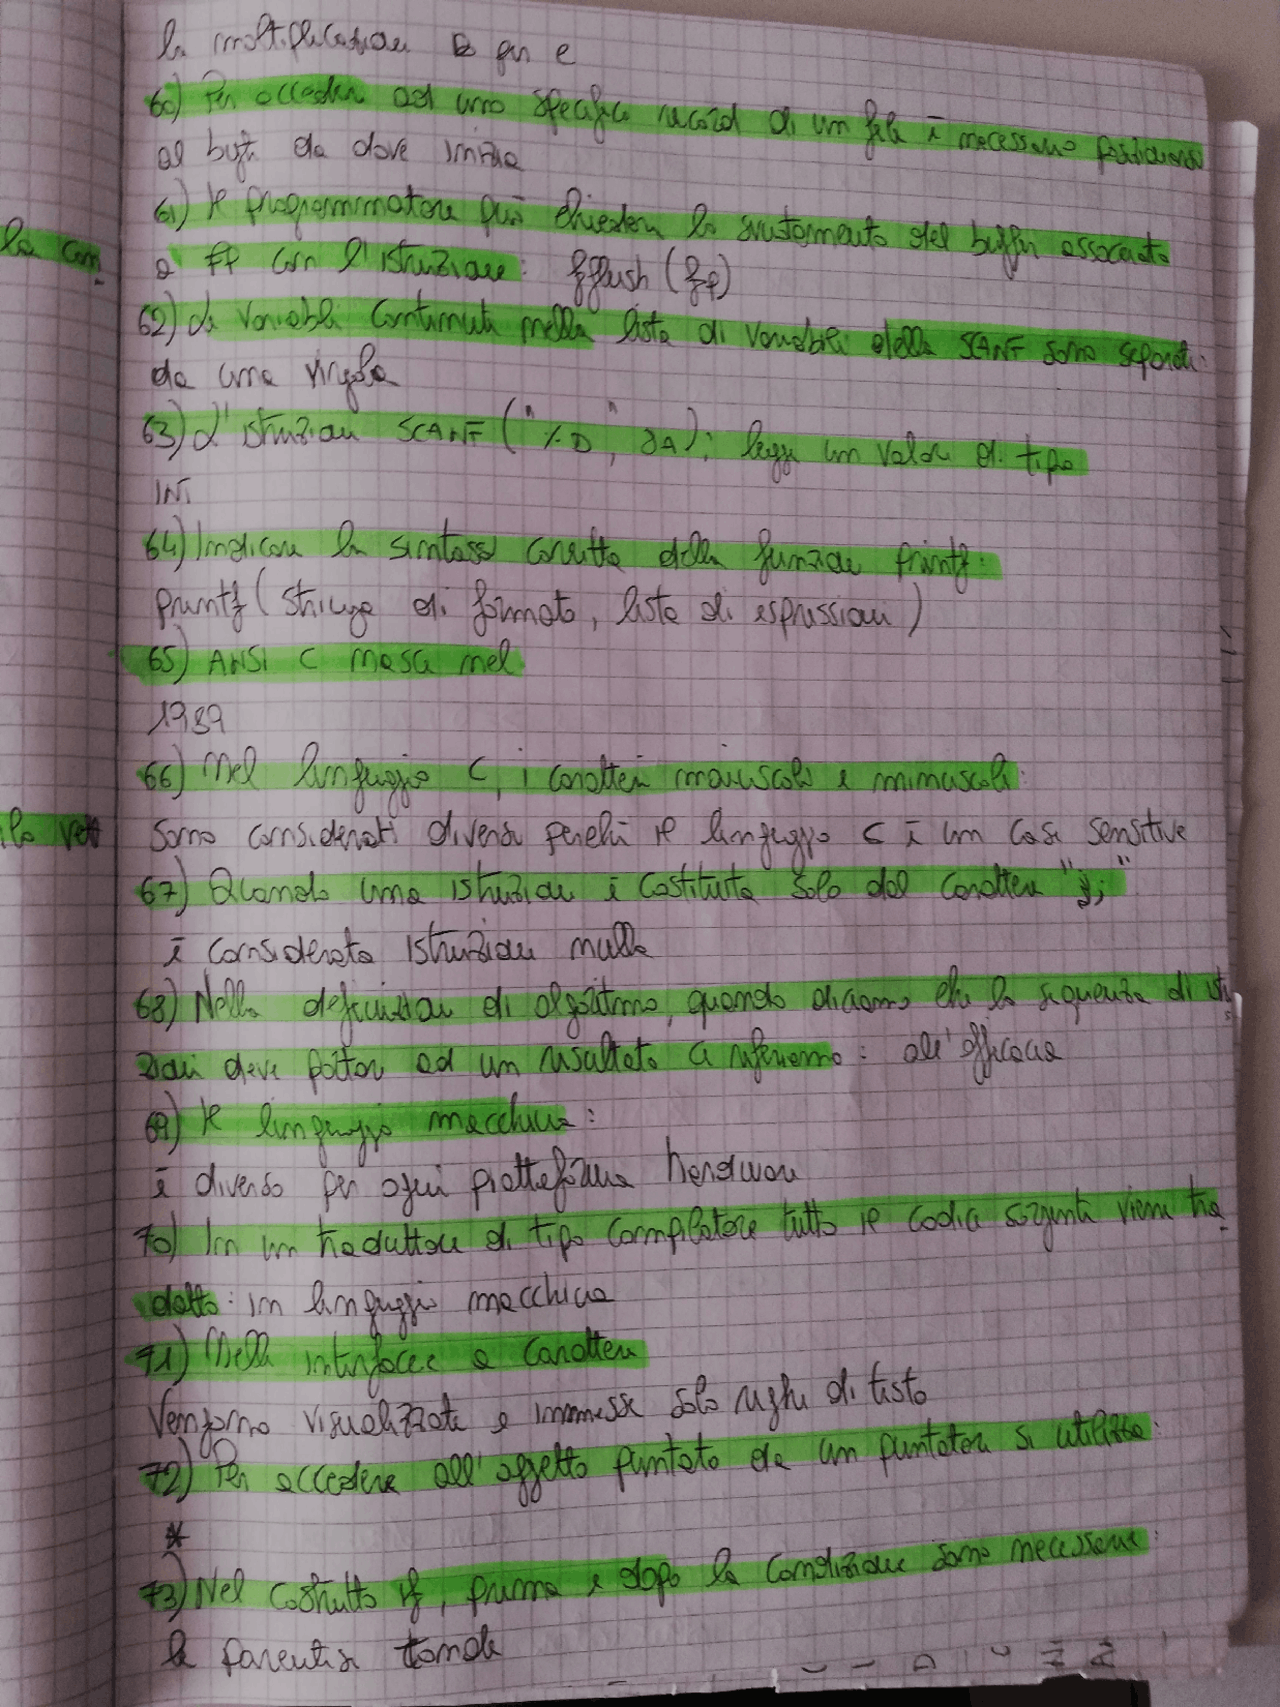 la moltiplicazione B per e
60) Per accedere ad uno specifico record di un file è necessario posizionarsi
al byte da dove inizia
61) Il programmatore può chiedere lo svuotamento del buffer associato
la com
a fp con l'istruzione: fflush (fp)
62) Le variabili contenute nella lista di variabili della SCANF sono separate:
da una virgola
63) L'istruzione SCANF ("%D", &A); legge un valore di tipo
INT
64) Indicare la sintassi corretta della funzione printf:
printf (stringa di formato, lista di espressioni)
65) ANSI C nasce nel
1989
66) Nel linguaggio C, i caratteri maiuscoli e minuscoli:
lo vett
Sono considerati diversi perché il linguaggio C è un case sensitive
67) Quando una istruzione è costituita solo dal carattere ";"
è considerata istruzione nulla
68) Nella definizione di algoritmo, quando diciamo che la sequenza di istru
zioni deve portare ad un risultato ci riferiamo: all'efficacia
69) Il linguaggio macchina:
è diverso per ogni piattaforma hardware
70) In un traduttore di tipo compilatore tutto il codice sorgente viene tra
dotto: in linguaggio macchina
71) Nelle interfacce a carattere
Vengono visualizzate e immesse solo righe di testo
72) Per accedere all'oggetto puntato da un puntatore si utilizza:
*
73) Nel costrutto if, prima e dopo la condizione sono necessarie:
le parentesi tonde